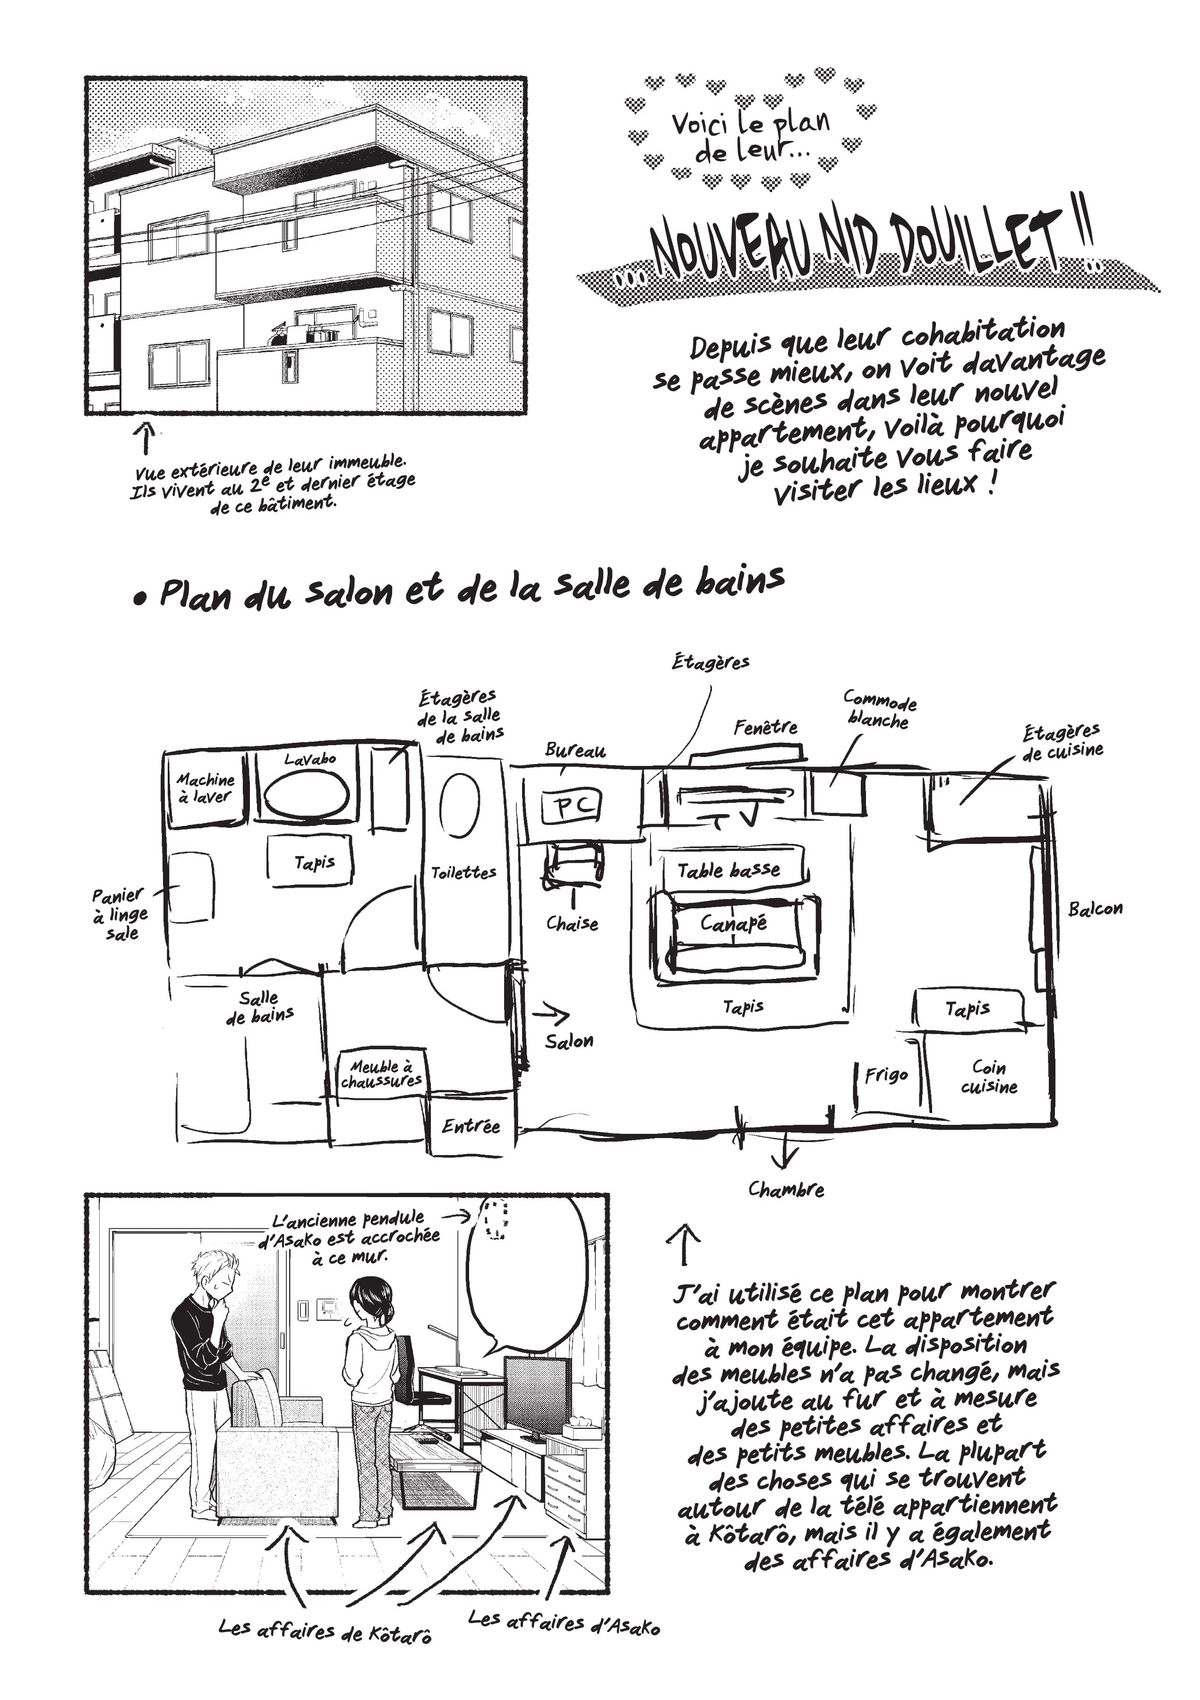 Voici le plan
de leur...
...NOUVEAU NID DOUILLET !!
Depuis que leur cohabitation
se passe mieux, on voit davantage
de scènes dans leur nouvel
appartement, voilà pourquoi
je souhaite vous faire
visiter les lieux !
Vue extérieure de leur immeuble.
Ils vivent au 2e et dernier étage
de ce bâtiment.
• Plan du salon et de la salle de bains
Étagères
Étagères
de la salle
de bains
Commode
blanche
Fenêtre
Étagères
de cuisine
Bureau
Machine
à laver
Lavabo
PC
TV
Tapis
Toilettes
Table basse
Panier
à linge
sale
Chaise
Canapé
Balcon
Salle
de bains
Salon
Tapis
Tapis
Meuble à
chaussures
Frigo
Coin
cuisine
Entrée
Chambre
L'ancienne pendule
d'Asako est accrochée
à ce mur.
Les affaires de Kôtarô
Les affaires d'Asako
J'ai utilisé ce plan pour montrer
comment était cet appartement
à mon équipe. La disposition
des meubles n'a pas changé, mais
j'ajoute au fur et à mesure
des petites affaires et
des petits meubles. La plupart
des choses qui se trouvent
autour de la télé appartiennent
à Kôtarô, mais il y a également
des affaires d'Asako.